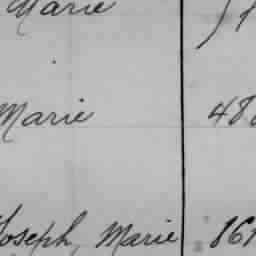 Marie
Marie 48
Joseph, Marie 161